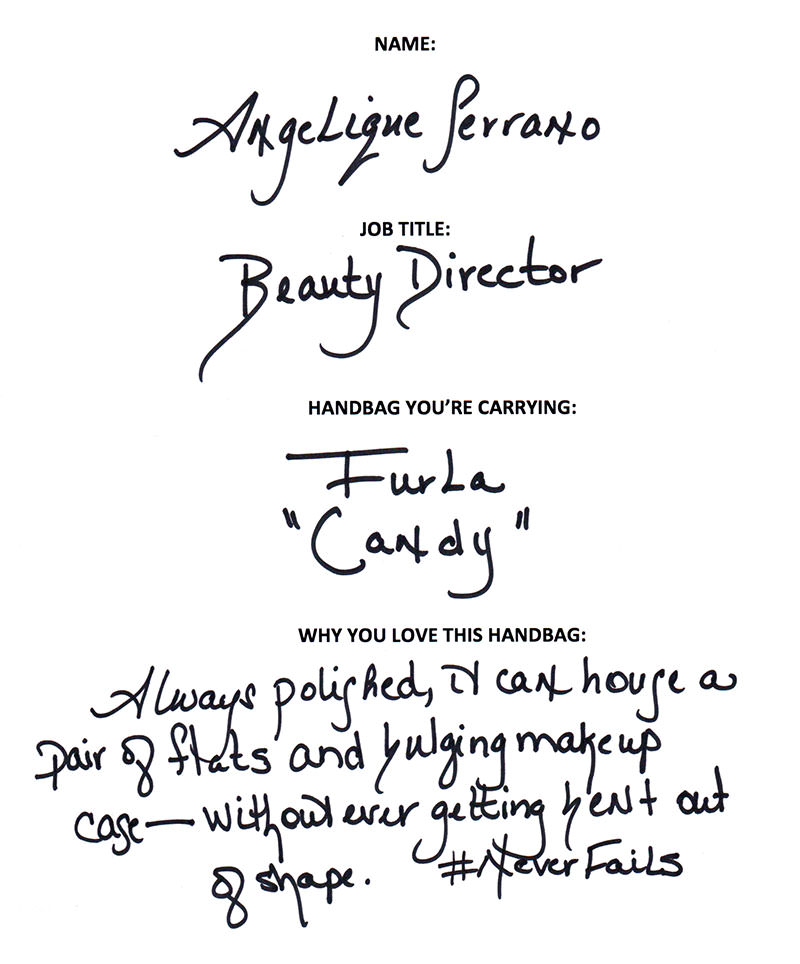 NAME:
Angelique Serrano
JOB TITLE:
Beauty Director
HANDBAG YOU'RE CARRYING:
Furla
"Candy"
WHY YOU LOVE THIS HANDBAG:
Always polished, it can house a
pair of flats and bulging makeup
case—without ever getting bent out
of shape. #NeverFails